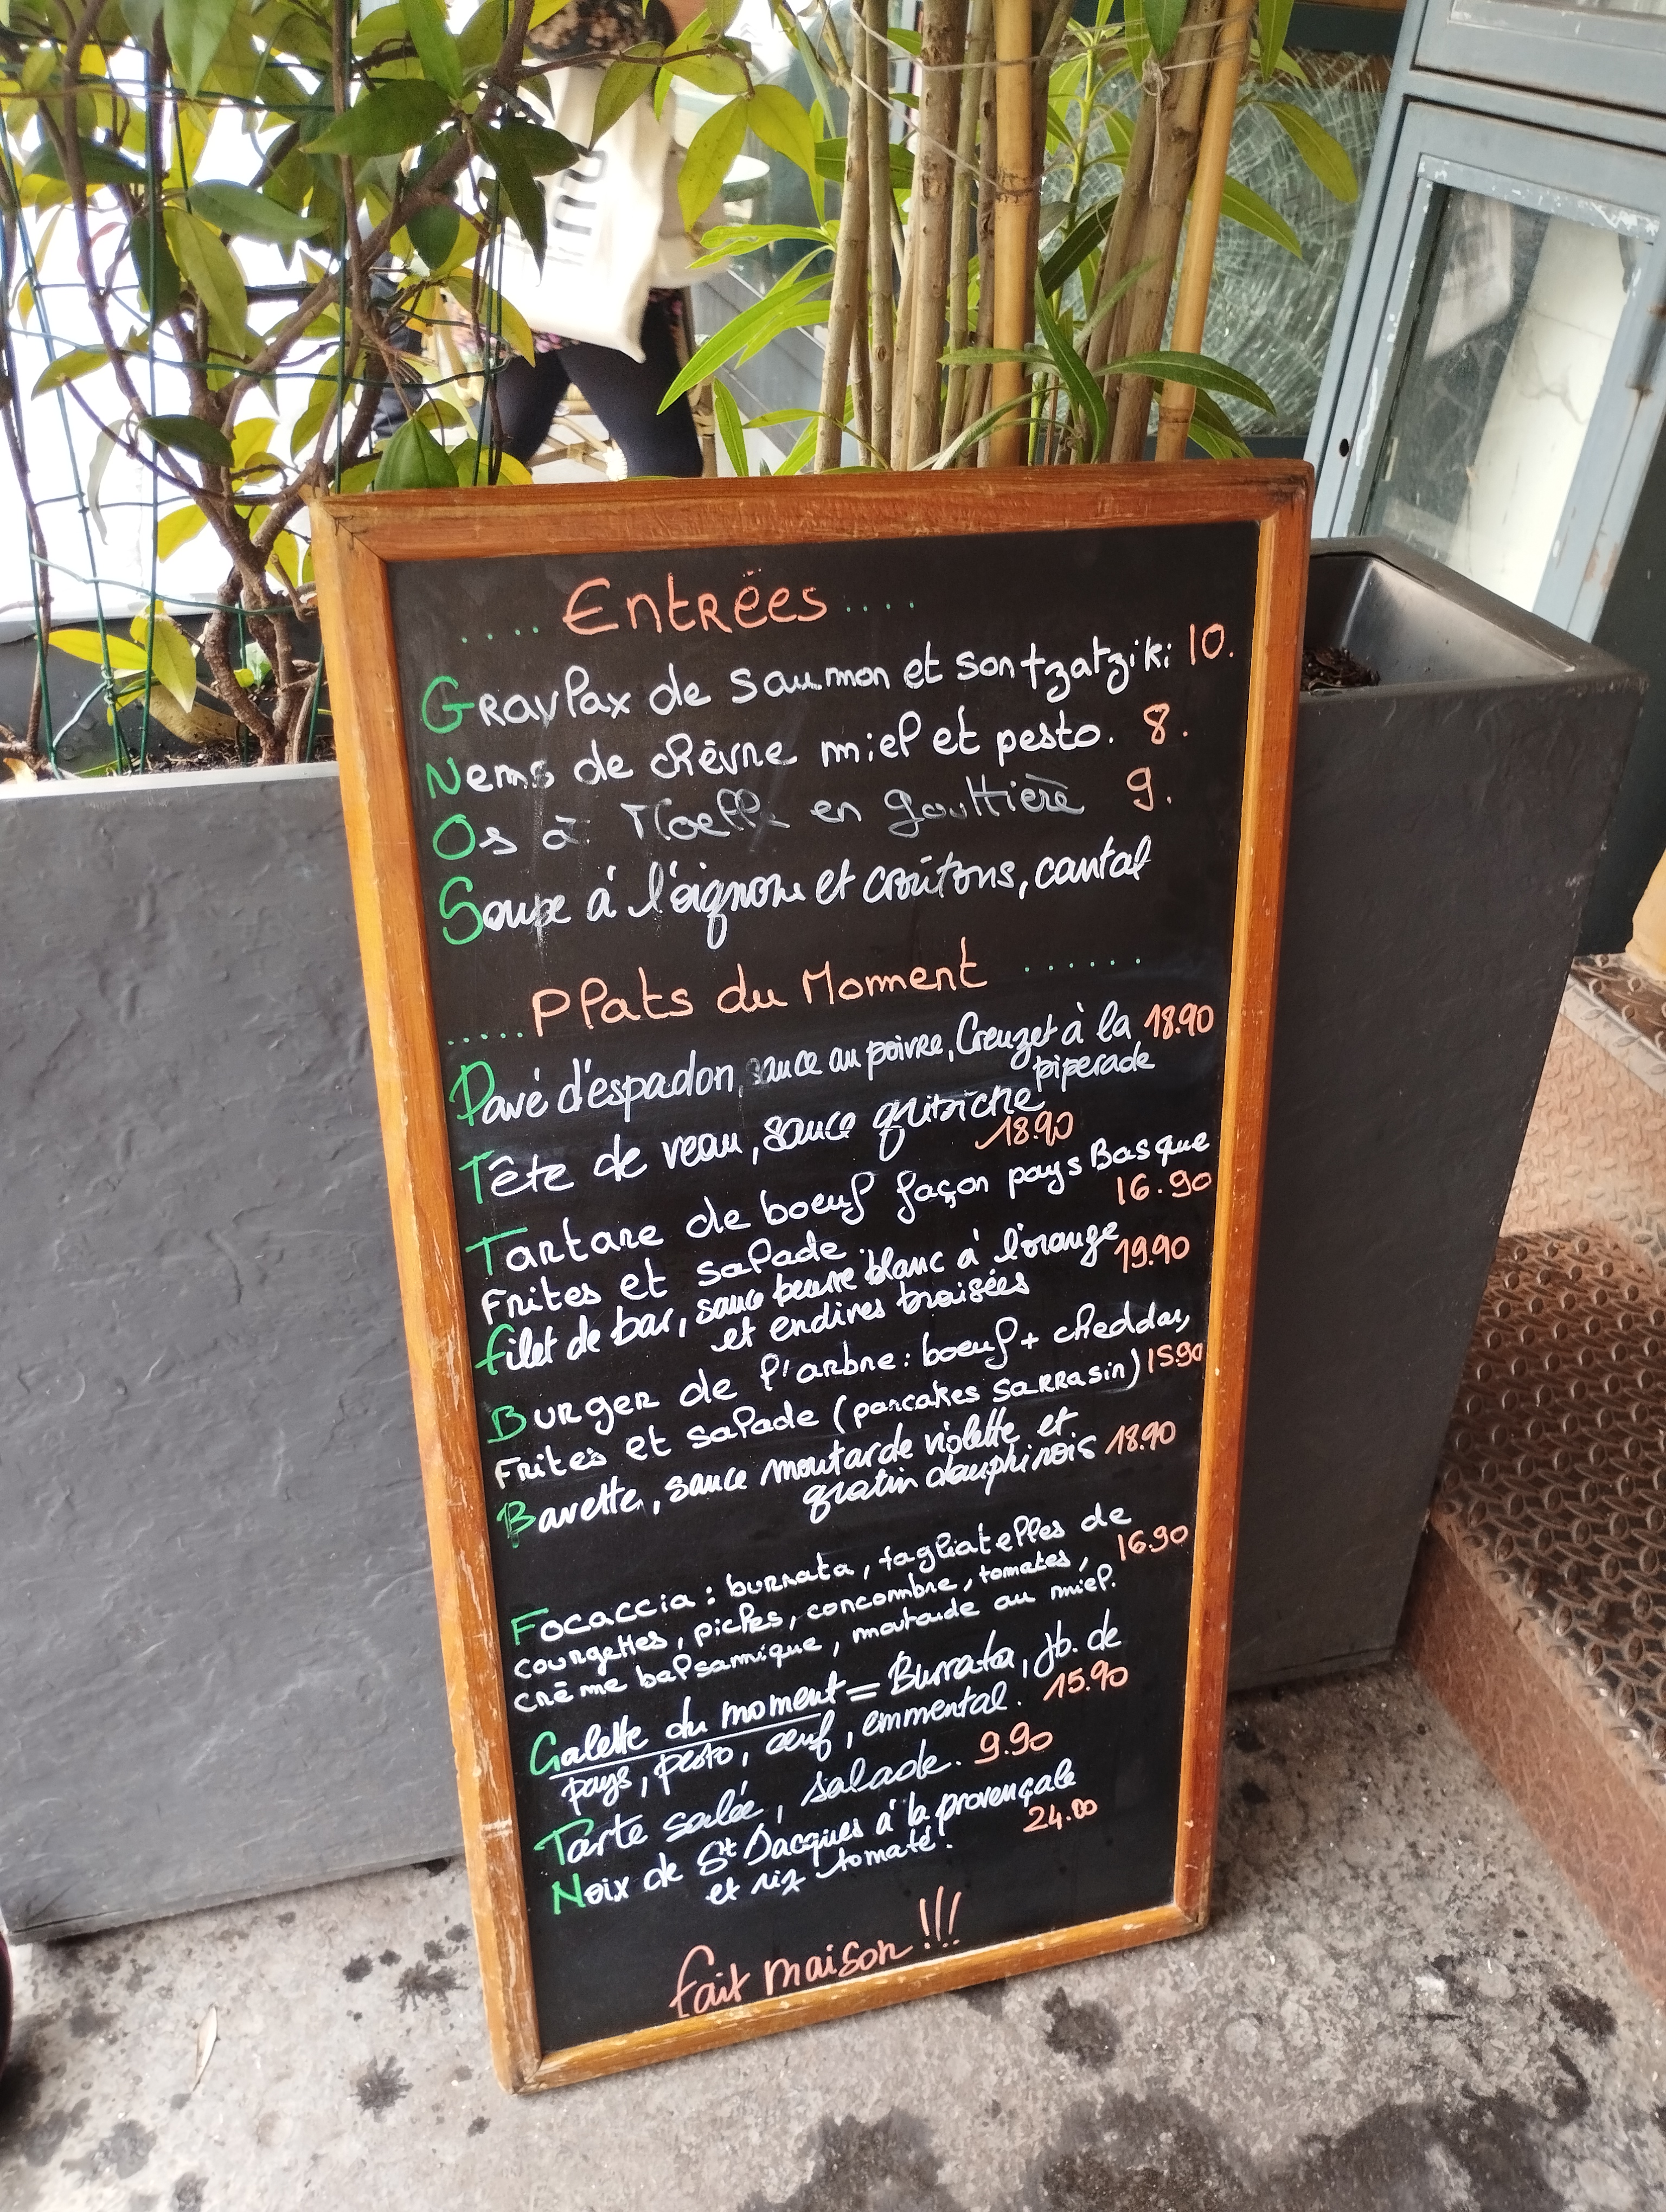 ..... Entrées .....
Gravlax de saumon et son tzatziki 10.
Nems de chèvre miel et pesto. 8.
Os à Moelle en gouttière 9.
Soupe à l'oignon et croûtons, cantal
..... Plats du Moment ......
Pavé d'espadon, sauce au poivre, Creuzet à la 18.90
piperade
Tête de veau, sauce gribiche
18.90
Tartare de boeuf façon pays Basque
Frites et salade. 16.90
filet de bar, sauce beurre blanc à l'orange 19.90
et endives braisées
Burger de l'arbre: boeuf + cheddar,
Frites et salade (pancakes sarrasin) 15.90
Bavette, sauce moutarde violette et
gratin dauphinois 18.90
Focaccia: burrata, tagliatelles de
courgettes, pickles, concombre, tomates, 16.90
crème balsamique, moutarde au miel.
Galette du moment = Burrata, jb. de
pays, pesto, œuf, emmental. 15.90
Tarte salée, salade. 9.90
Noix de St Jacques à la provençale
et riz tomaté. 24.00
fait maison !!!